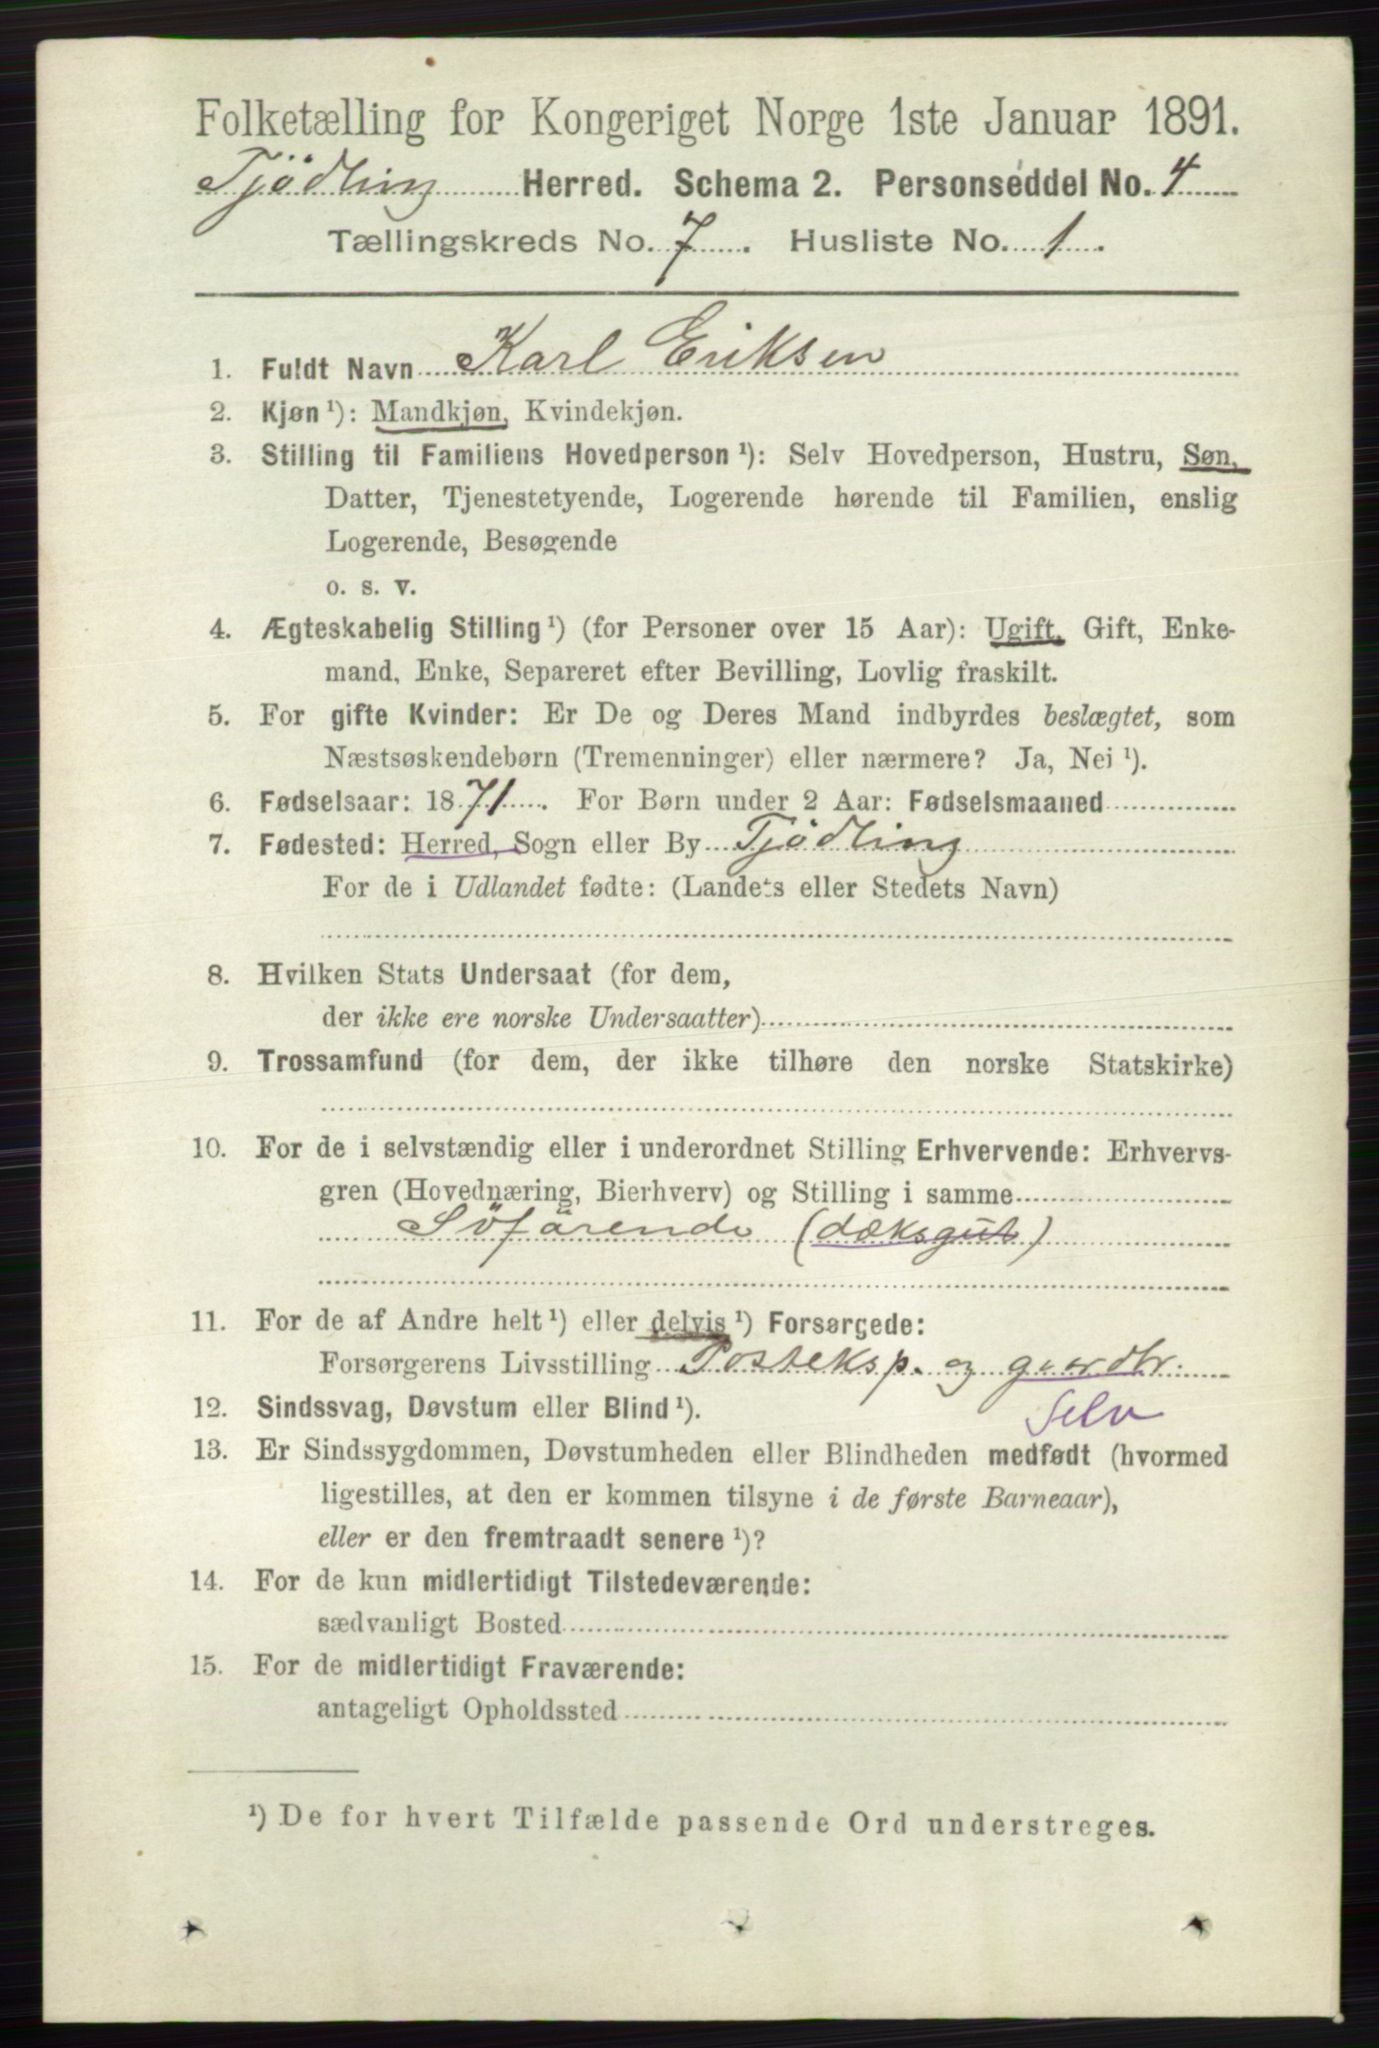 Folketælling for Kongeriget Norge 1ste Januar 1891.
Tjödling Herred. Schema 2. Personseddel No. 4
Tællingskreds No. 7. Husliste No. 1.
1. Fuldt Navn Karl Eriksen
2. Kjøn ¹): Mandkjøn, Kvindekjøn.
3. Stilling til Familiens Hovedperson ¹): Selv Hovedperson, Hustru, Søn,
Datter, Tjenestetyende, Logerende hørende til Familien, enslig
Logerende, Besøgende
o. s. v.
4. Ægteskabelig Stilling ¹) (for Personer over 15 Aar): Ugift, Gift, Enke-
mand, Enke, Separeret efter Bevilling, Lovlig fraskilt.
5. For gifte Kvinder: Er De og Deres Mand indbyrdes beslægtet, som
Næstsøskendebørn (Tremenninger) eller nærmere? Ja, Nei ¹).
6. Fødselsaar: 1871. For Børn under 2 Aar: Fødselsmaaned
7. Fødested: Herred, Sogn eller By Tjödling
For de i Udlandet fødte: (Landets eller Stedets Navn)
8. Hvilken Stats Undersaat (for dem,
der ikke ere norske Undersaatter)
9. Trossamfund (for dem, der ikke tilhøre den norske Statskirke)
10. For de i selvstændig eller i underordnet Stilling Erhvervende: Erhvervs-
gren (Hovednæring, Bierhverv) og Stilling i samme
Söfarende (dæksgut)
11. For de af Andre helt ¹) eller delvis ¹) Forsørgede:
Forsørgerens Livsstilling Posteksp. og gaardbr.
12. Sindssvag, Døvstum eller Blind ¹). Selv
13. Er Sindssygdommen, Døvstumheden eller Blindheden medfødt (hvormed
ligestilles, at den er kommen tilsyne i de første Barneaar),
eller er den fremtraadt senere ¹)?
14. For de kun midlertidigt Tilstedeværende:
sædvanligt Bosted
15. For de midlertidigt Fraværende:
antageligt Opholdssted
¹) De for hvert Tilfælde passende Ord understreges.